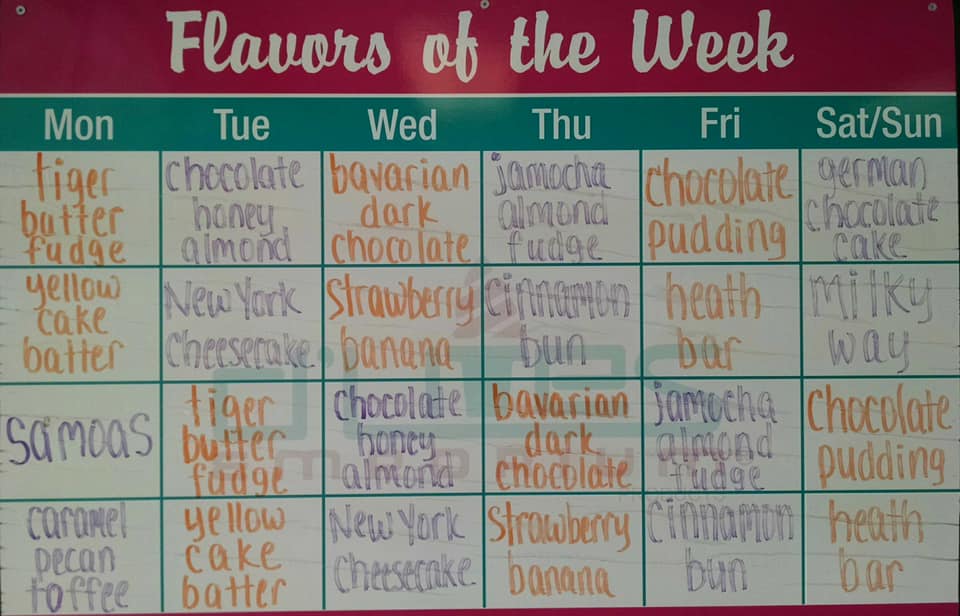 Flavors of the Week
Mon Tue Wed Thu Fri Sat/Sun
tiger butter fudge
chocolate honey almond
bavarian dark chocolate
jamocha almond fudge
chocolate pudding
german chocolate cake
yellow cake batter
New York Cheesecake
Strawberry banana
cinnamon bun
heath bar
milky way
samoas
tiger butter fudge
chocolate honey almond
bavarian dark chocolate
jamocha almond fudge
chocolate pudding
caramel pecan toffee
yellow cake batter
New York Cheesecake
Strawberry banana
cinnamon bun
heath bar